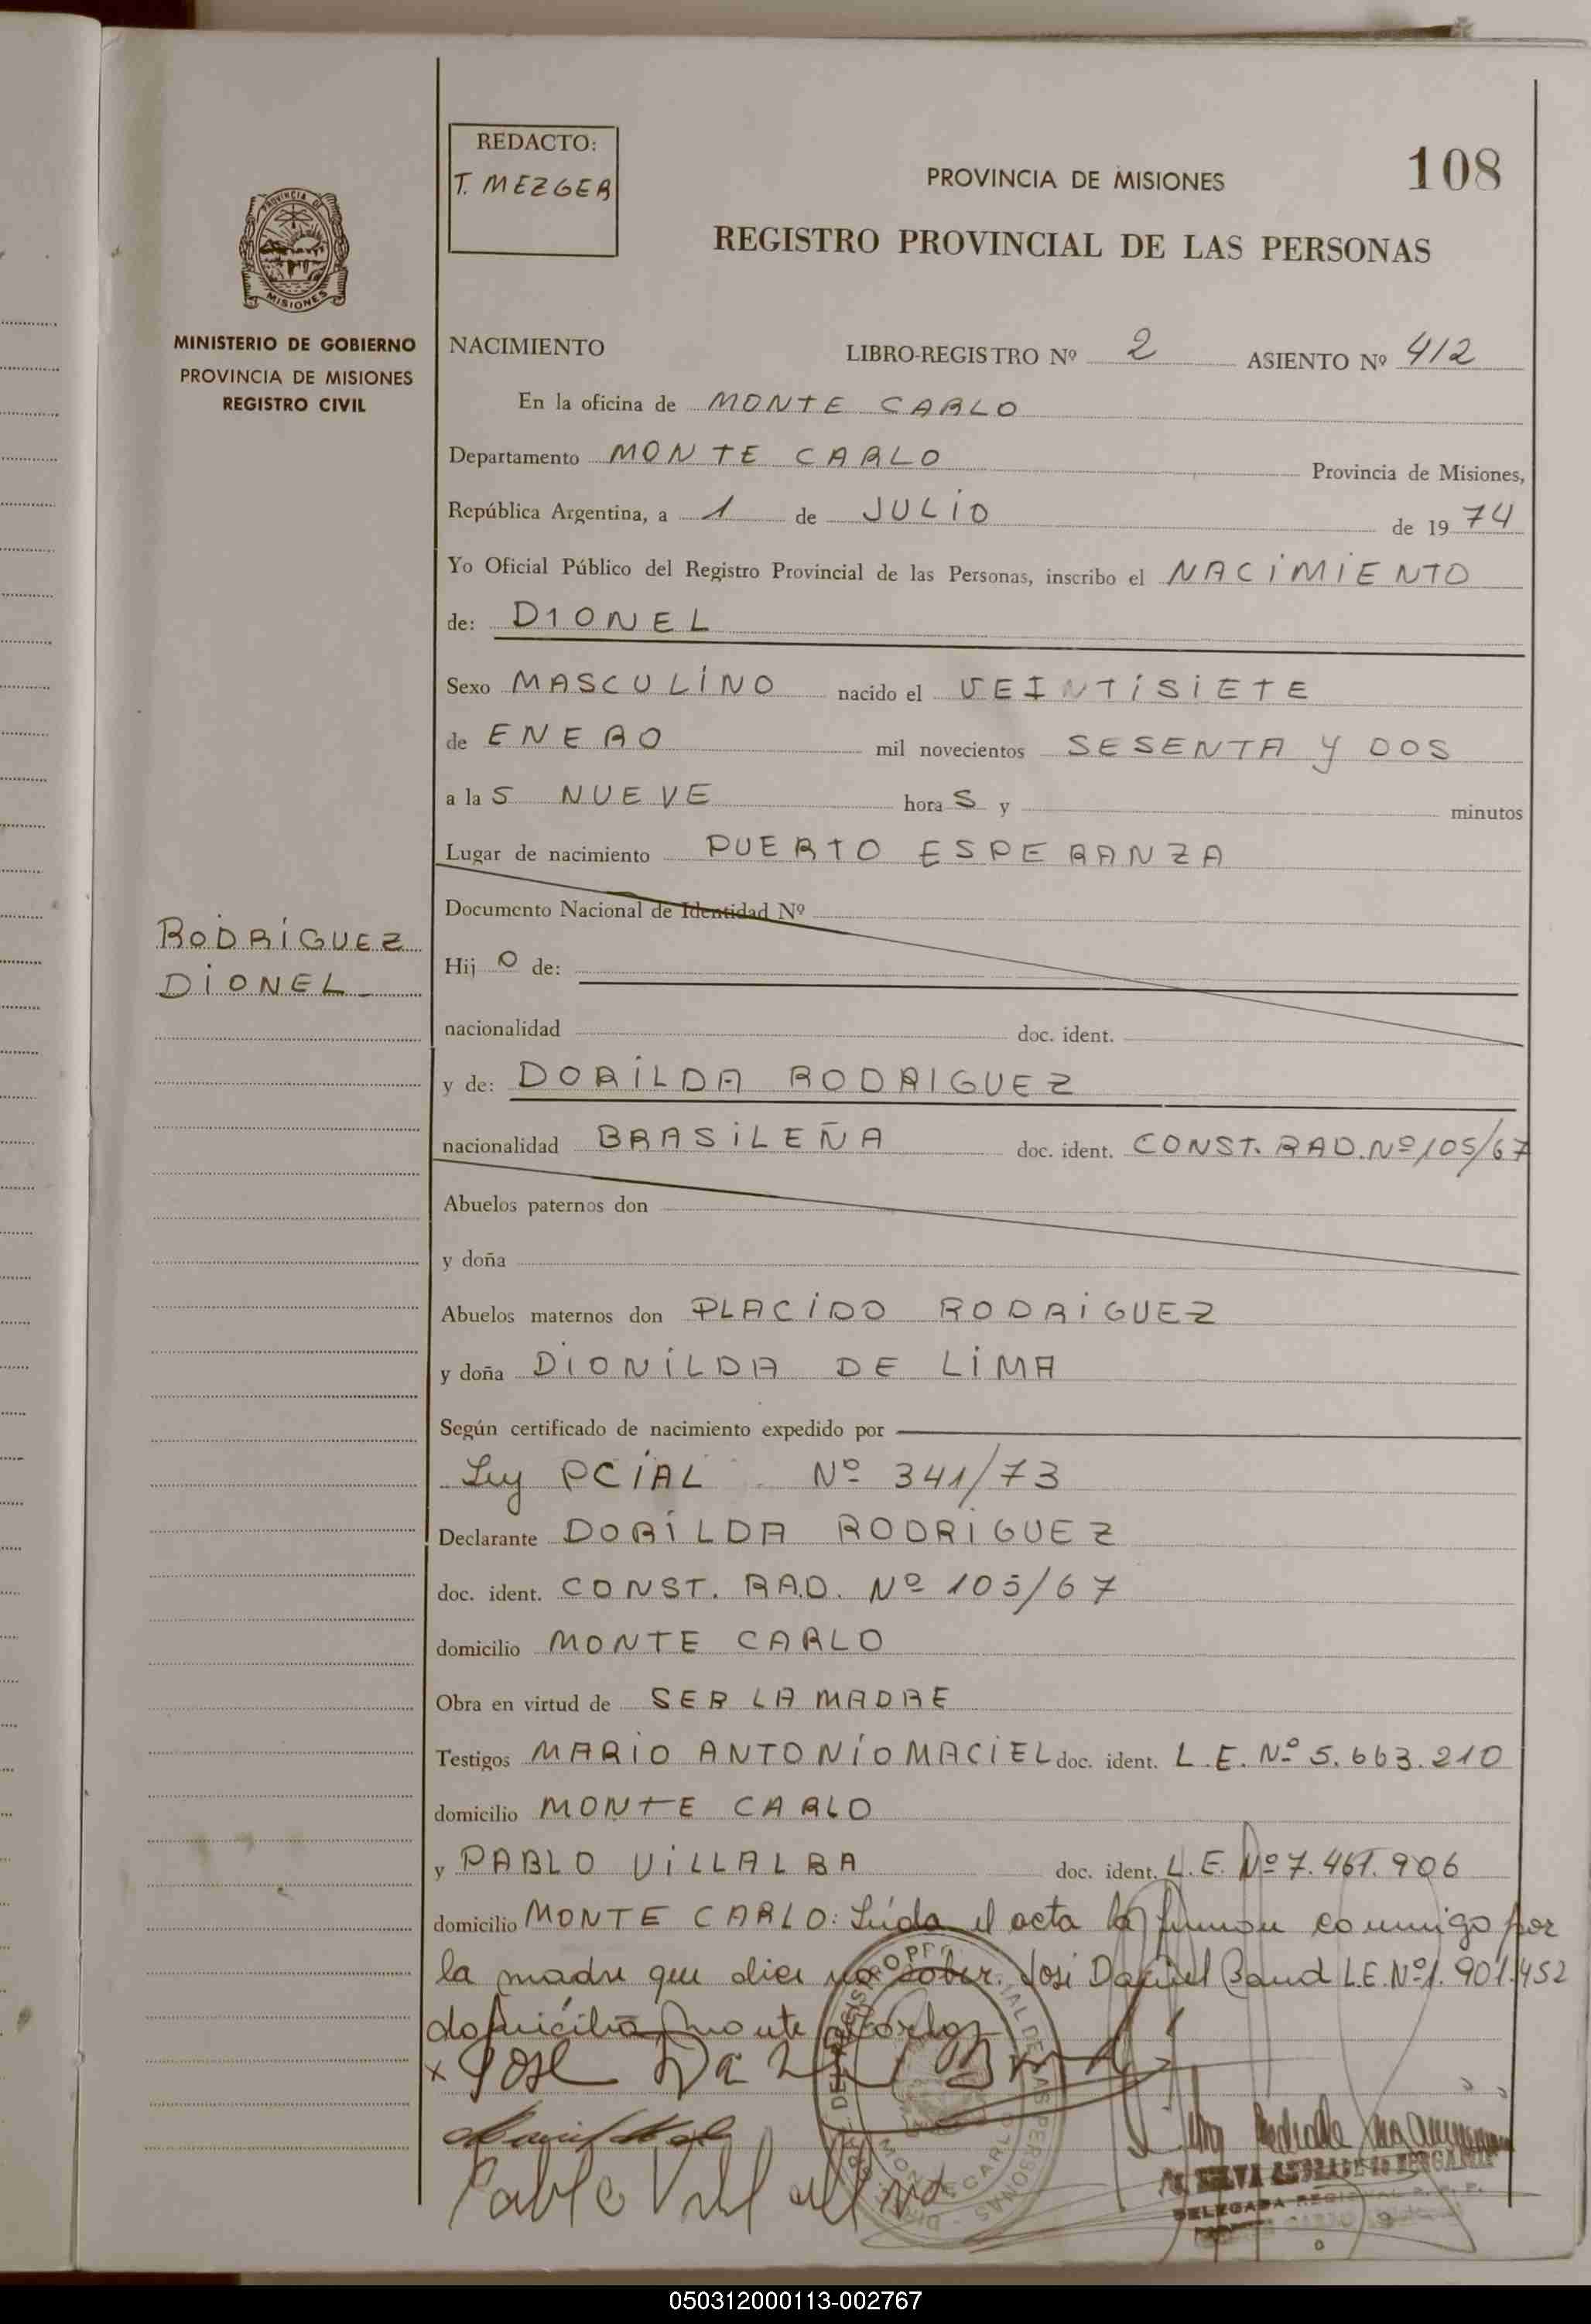 REDACTO:
T. MEZGER
PROVINCIA DE MISIONES
108
REGISTRO PROVINCIAL DE LAS PERSONAS
PROVINCIA DE
MISIONES
MINISTERIO DE GOBIERNO
PROVINCIA DE MISIONES
REGISTRO CIVIL
NACIMIENTO LIBRO-REGISTRO Nº 2 ASIENTO Nº 412
En la oficina de MONTE CARLO
Departamento MONTE CARLO Provincia de Misiones,
República Argentina, a 1 de JULIO de 1974
Yo Oficial Público del Registro Provincial de las Personas, inscribo el NACIMIENTO
de: DIONEL
Sexo MASCULINO nacido el VEINTISIETE
de ENERO mil novecientos SESENTA Y DOS
a la S NUEVE hora S y minutos
Lugar de nacimiento PUERTO ESPERANZA
Documento Nacional de Identidad Nº
RODRIGUEZ
DIONEL
Hij O de:
nacionalidad doc. ident.
y de: DORILDA RODRIGUEZ
nacionalidad BRASILEÑA doc. ident. CONST. RAD. Nº 105/67
Abuelos paternos don
y doña
Abuelos maternos don PLACIDO RODRIGUEZ
y doña DIONILDA DE LIMA
Según certificado de nacimiento expedido por
Ley PCIAL Nº 341/73
Declarante DORILDA RODRIGUEZ
doc. ident. CONST. RAD. Nº 105/67
domicilio MONTE CARLO
Obra en virtud de SER LA MADRE
Testigos MARIO ANTONIO MACIEL doc. ident. L.E. Nº 5.663.210
domicilio MONTE CARLO
y PABLO VILLALBA doc. ident. L.E. Nº 7.461.906
domicilio MONTE CARLO: Leída el acta la firman conmigo por
la madre que dice no saber. José Daniel L.E. Nº 1.901.452
domicilio Monte Carlo
x José
Pablo Villalba
DELEGADA REGIONAL R. P. P.
050312000113-002767